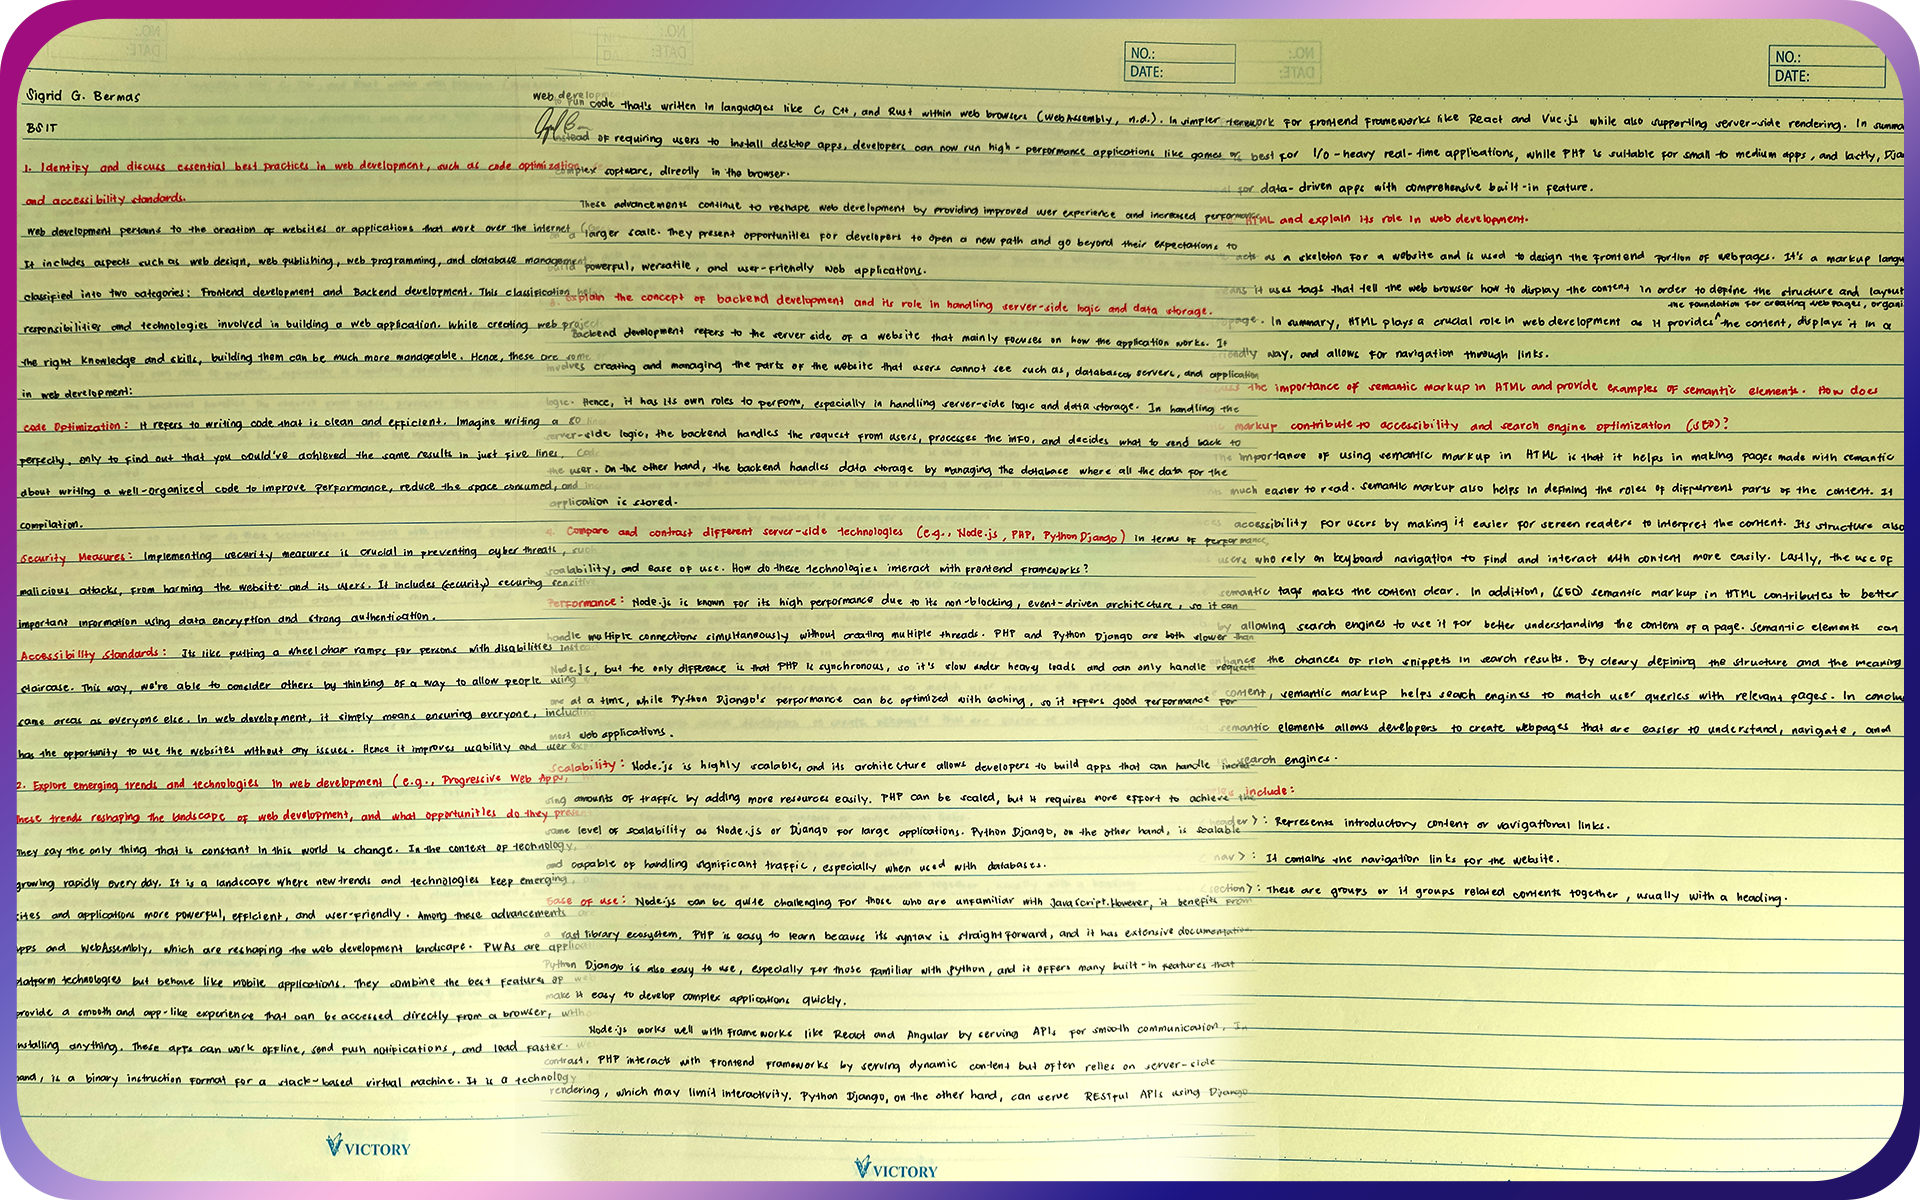 Sigrid G. Bermas
BSIT
1. Identify and discuss essential best practices in web development, such as code optimization,
and accessibility standards.
Web development pertains to the creation of websites or applications that work over the internet
It includes aspects such as web design, web publishing, web programming, and database management.
classified into two categories: Frontend development and Backend development. This classification
responsibilities and technologies involved in building a web application. While creating web
the right knowledge and skills, building them can be much more manageable. Hence, these are some
in web development:
Code Optimization: It refers to writing code that is clean and efficient. Imagine writing a 50
perfectly, only to find out that you could've achieved the same results in just five lines.
about writing a well-organized code to improve performance, reduce the space consumed, and
compilation.
Security Measures: Implementing security measures is crucial in preventing cyber threats, such
malicious attacks, from harming the website and its users. It includes (security) securing sensitive
important information using data encryption and strong authentication.
Accessibility Standards: Its like putting a wheel chair ramps for persons with disabilities instead
staircase. This way, we're able to consider others by thinking of a way to allow people using
same areas as everyone else. In web development, it simply means ensuring everyone, including
has the opportunity to use the websites without any issues. Hence it improves usability and user
2. Explore emerging trends and technologies in web development (e.g., Progressive Web Apps,
these trends reshaping the landscape of web development, and what opportunities do they
They say the only thing that is constant in this world is change. In the context of technology,
growing rapidly every day. It is a landscape where new trends and technologies keep emerging,
sites and applications more powerful, efficient, and user-friendly. Among these advancements
apps and WebAssembly, which are reshaping the web development landscape. PWAs are
platform technologies but behave like mobile applications. They combine the best features of
provide a smooth and app-like experience that can be accessed directly from a browser,
installing anything. These apps can work offline, send push notifications, and load faster.
hand, is a binary instruction format for a stack-based virtual machine. It is a technology
VICTORY
web
to run code that's written in languages like C, C++, and Rust within web browsers (WebAssembly, n.d.). In simpler
instead of requiring users to install desktop apps, developers can now run high-performance applications like games or
complex software, directly in the browser.
These advancements continue to reshape web development by providing improved user experience and increased performance
on a larger scale. They present opportunities for developers to open a new path and go beyond their expectations to
build powerful, versatile, and user-friendly web applications.
3. Explain the concept of backend development and its role in handling server-side logic and data storage.
Backend development refers to the server side of a website that mainly focuses on how the application works. It
involves creating and managing the parts of the website that users cannot see such as, databases, servers, and application
logic. Hence, it has its own roles to perform, especially in handling server-side logic and data storage. In handling the
server-side logic, the backend handles the request from users, processes the info, and decides what to send back to
the user. On the other hand, the backend handles data storage by managing the database where all the data for the
application is stored.
4. Compare and contrast different server-side technologies (e.g., Node.js, PHP, Python Django) in terms of performance,
scalability, and ease of use. How do these technologies interact with frontend frameworks?
Performance: Node.js is known for its high performance due to its non-blocking, event-driven architecture, so it can
handle multiple connections simultaneously without creating multiple threads. PHP and Python Django are both slower than
Node.js, but the only difference is that PHP is synchronous, so it's slow under heavy loads and can only handle requests
one at a time, while Python Django's performance can be optimized with caching, so it offers good performance for
most web applications.
Scalability: Node.js is highly scalable, and its architecture allows developers to build apps that can handle increa-
sing amounts of traffic by adding more resources easily. PHP can be scaled, but it requires more effort to achieve the
same level of scalability as Node.js or Django for large applications. Python Django, on the other hand, is scalable
and capable of handling significant traffic, especially when used with databases.
Ease of use: Node.js can be quite challenging for those who are unfamiliar with JavaScript. However, it benefits from
a vast library ecosystem. PHP is easy to learn because its syntax is straight forward, and it has extensive documentation.
Python Django is also easy to use, especially for those familiar with python, and it offers many built-in features that
make it easy to develop complex applications quickly.
Node.js works well with frameworks like React and Angular by serving APIs for smooth communication. In
contrast, PHP interacts with frontend frameworks by serving dynamic content but often relies on server-side
rendering, which may limit interactivity. Python Django, on the other hand, can serve RESTful APIs using Django
VICTORY
NO.:
DATE:
NO.:
DATE:
for frontend frameworks like React and Vue.js while also supporting server-side rendering. In summa
best for I/O-heavy real-time applications, while PHP is suitable for small to medium apps, and lastly, Djan
for data-driven apps with comprehensive built-in feature.
HTML and explain its role in web development.
acts as a skeleton for a website and is used to design the frontend portion of webpages. It's a markup langu
it uses tags that tell the web browser how to display the content in order to define the structure and layout
the foundation for creating web pages, organi
page. In summary, HTML plays a crucial role in web development as it provides ^ the content, displays it in a
way, and allows for navigation through links.
the importance of semantic markup in HTML and provide examples of semantic elements. How does
markup contribute to accessibility and search engine optimization (SEO)?
The importance of using semantic markup in HTML is that it helps in making pages made with semantic
much easier to read. Semantic markup also helps in defining the roles of diffurrent parts of the content. It
accessibility for users by making it easier for screen readers to interpret the content. Its structure also
users who rely on keyboard navigation to find and interact with content more easily. Lastly, the use of
semantic tags makes the content clear. In addition, (SEO) semantic markup in HTML contributes to better
by allowing search engines to use it for better understanding the content of a page. Semantic elements can
enhance the chances of rich snippets in search results. By cleary defining the structure and the meaning
content, semantic markup helps search engines to match user queries with relevant pages. In conclu
semantic elements allows developers to create webpages that are easier to understand, navigate, and
search engines.
include:
header>: Represents introductory content or vavigational links.
<nav>: It contains the navigation links for the website.
<section>: These are groups or it groups related contents together, usually with a heading.